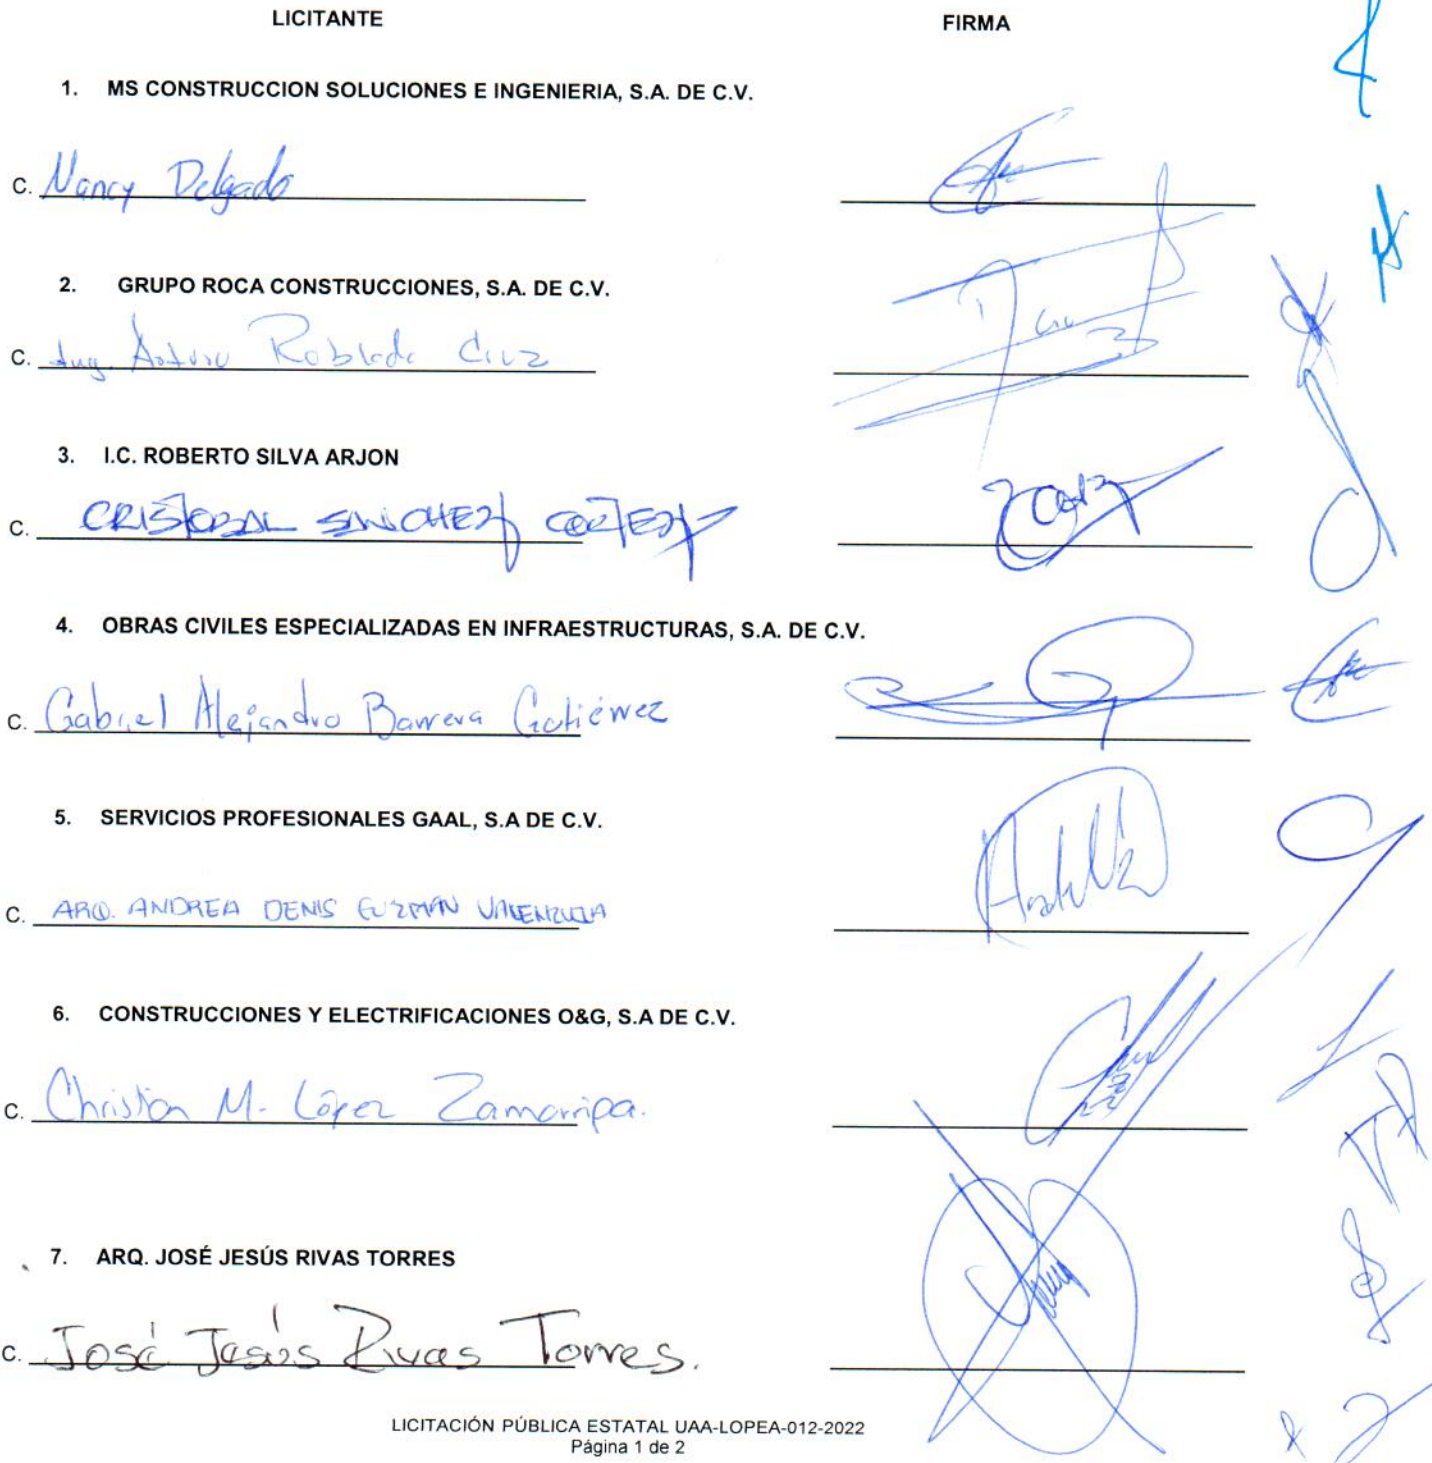 LICITANTE FIRMA
1. MS CONSTRUCCION SOLUCIONES E INGENIERIA, S.A. DE C.V.
C. Nancy Delgado
2. GRUPO ROCA CONSTRUCCIONES, S.A. DE C.V.
C. Ing. Arturo Robledo Cruz
3. I.C. ROBERTO SILVA ARJON
C. CRISTOBAL SANCHEZ CORTEZ
4. OBRAS CIVILES ESPECIALIZADAS EN INFRAESTRUCTURAS, S.A. DE C.V.
C. Gabriel Alejandro Barrera Gutiérrez
5. SERVICIOS PROFESIONALES GAAL, S.A DE C.V.
C. ARQ. ANDREA DENIS GUZMÁN VALENZUELA
6. CONSTRUCCIONES Y ELECTRIFICACIONES O&G, S.A DE C.V.
C. Christian M. López Zamarripa.
7. ARQ. JOSÉ JESÚS RIVAS TORRES
C. José Jesús Rivas Torres.
LICITACIÓN PÚBLICA ESTATAL UAA-LOPEA-012-2022
Página 1 de 2